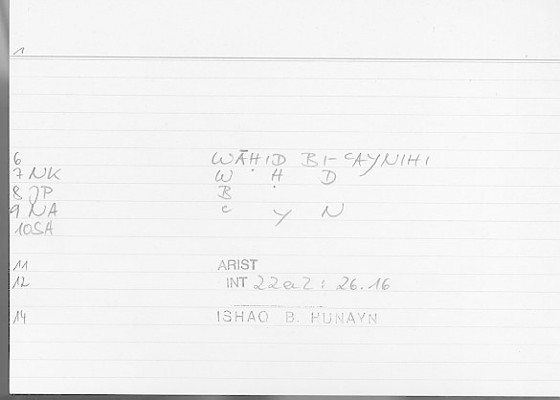 1
6 WĀHID BI-ʿAYNIHI
7 NK W Ḥ D
8 JP B
9 NA ʿ Y N
10 SA
11 ARIST
12 INT 22a2 : 26.16
14 ISHAQ B. HUNAYN